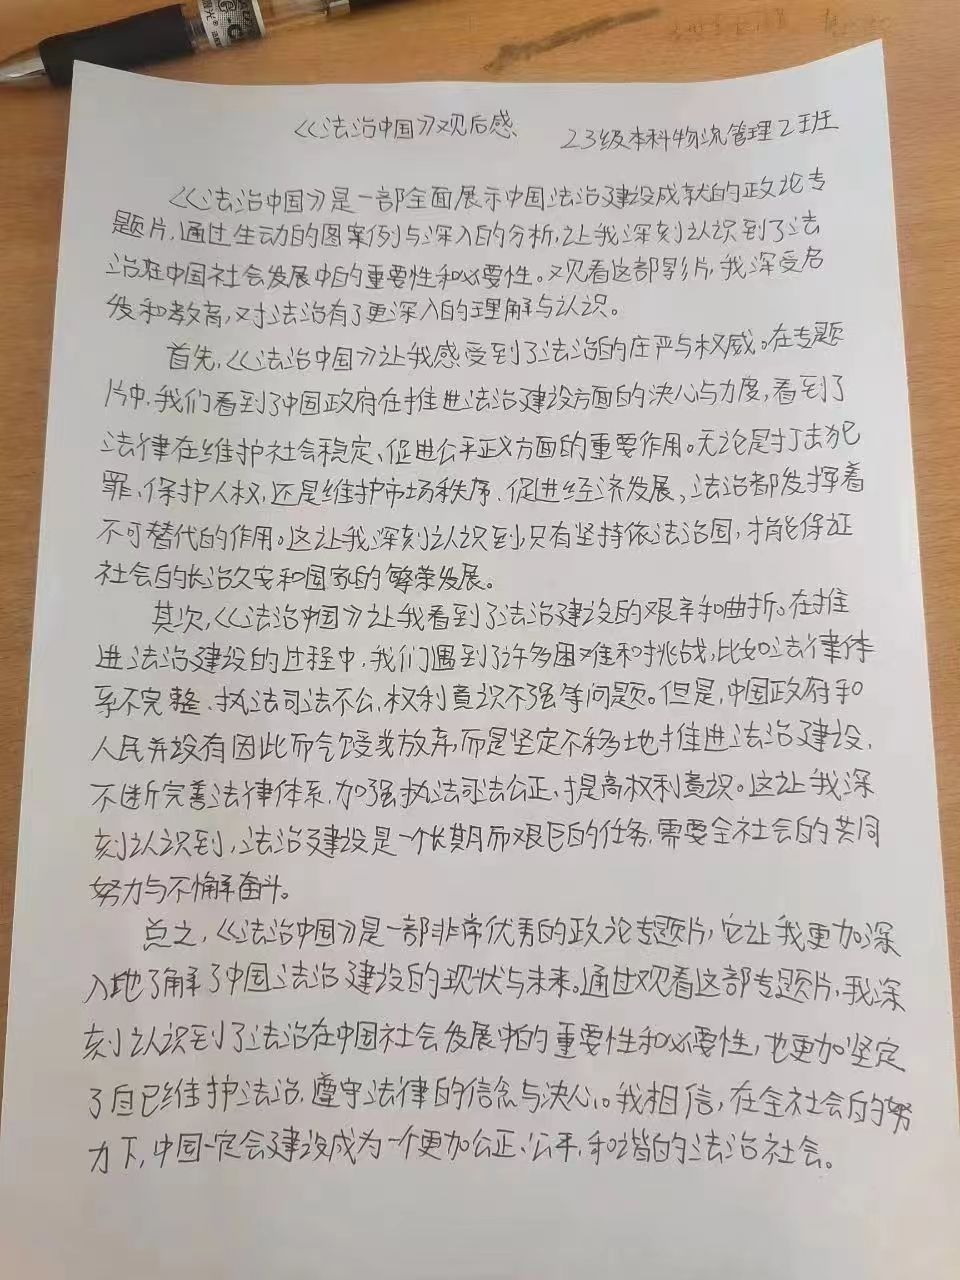 《法治中国》观后感
23级本科物流管理2班
《法治中国》是一部全面展示中国法治建设成就的政论专
题片,通过生动的图案例与深入的分析,让我深刻认识到了法
治在中国社会发展中的重要性和必要性。观看这部影片,我深受启
发和教育,对法治有了更深入的理解与认识。
首先,《法治中国》让我感受到了法治的庄严与权威。在专题
片中,我们看到了中国政府在推进法治建设方面的决心与力度,看到了
法律在维护社会稳定、促进公平正义方面的重要作用。无论是打击犯
罪、保护人权,还是维护市场秩序、促进经济发展,法治都发挥着
不可替代的作用。这让我深刻认识到只有坚持依法治国,才能保证
社会的长治久安和国家的繁荣发展。
其次,《法治中国》让我看到了法治建设的艰辛和曲折。在推
进法治建设的过程中,我们遇到了许多困难和挑战,比如法律体
系不完整、执法司法不公,权利意识不强等问题。但是,中国政府和
人民并没有因此而气馁或放弃,而是坚定不移地推进法治建设,
不断完善法律体系,加强执法司法公正、提高权利意识。这让我深
刻认识到,法治建设是一个长期而艰巨的任务,需要全社会的共同
努力与不懈奋斗。
总之,《法治中国》是一部非常优秀的政论专题片,它让我更加深
入地了解了中国法治建设的现状与未来。通过观看这部专题片,我深
刻认识到了法治在中国社会发展中的重要性和必要性,也更加坚定
了自己维护法治、遵守法律的信念与决心。我相信,在全社会的努
力下,中国一定会建设成为一个更加公正、公平,和谐的法治社会。